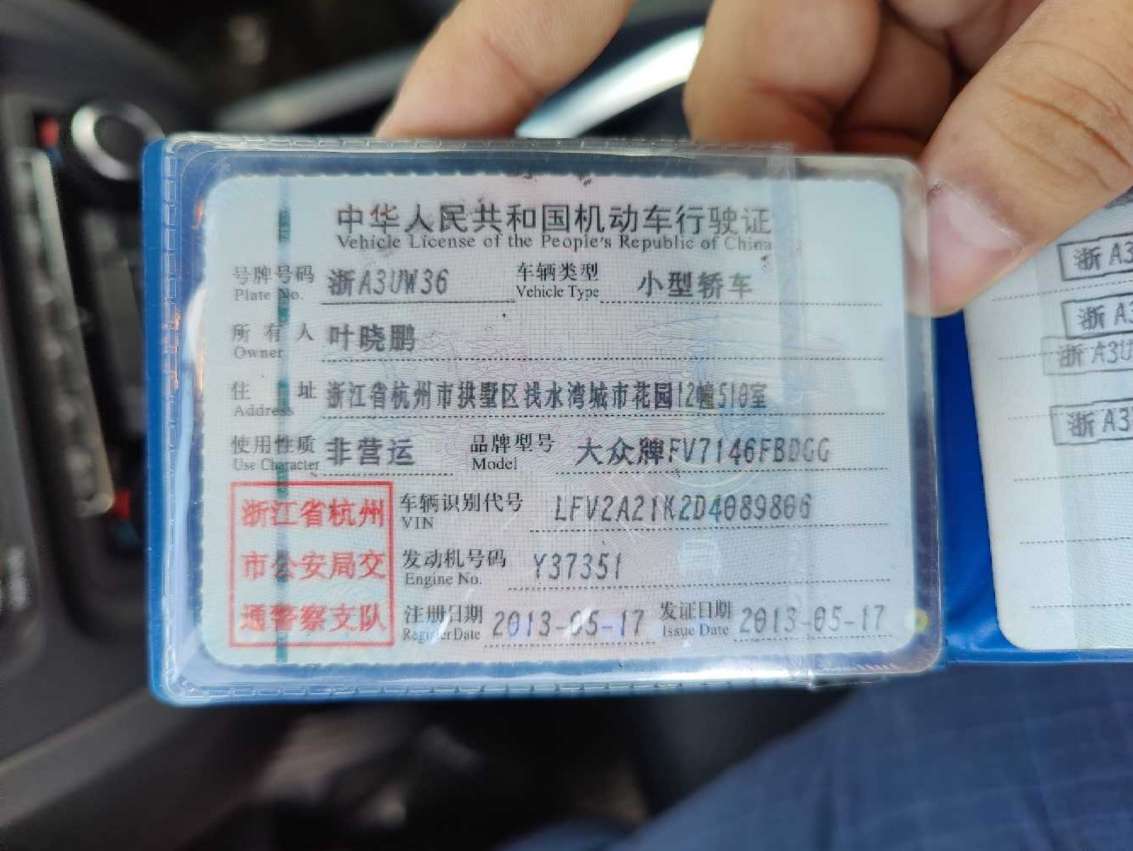 中华人民共和国机动车行驶证
Vehicle License of the People's Republic of China
号牌号码 浙A3UW36 车辆类型 小型轿车
Plate No. Vehicle Type
所有人 叶晓鹏
Owner
住址 浙江省杭州市拱墅区浅水湾城市花园12幢510室
Address
使用性质 非营运 品牌型号 大众牌FV7146FBDGG
Use Character Model
浙江省杭州
市公安局交
通警察支队
车辆识别代号 LFV2A21K2D4089806
VIN
发动机号码 Y37351
Engine No.
注册日期 2013-05-17 发证日期 2013-05-17
Register Date Issue Date
浙A3
浙A3
浙A3U
浙A3